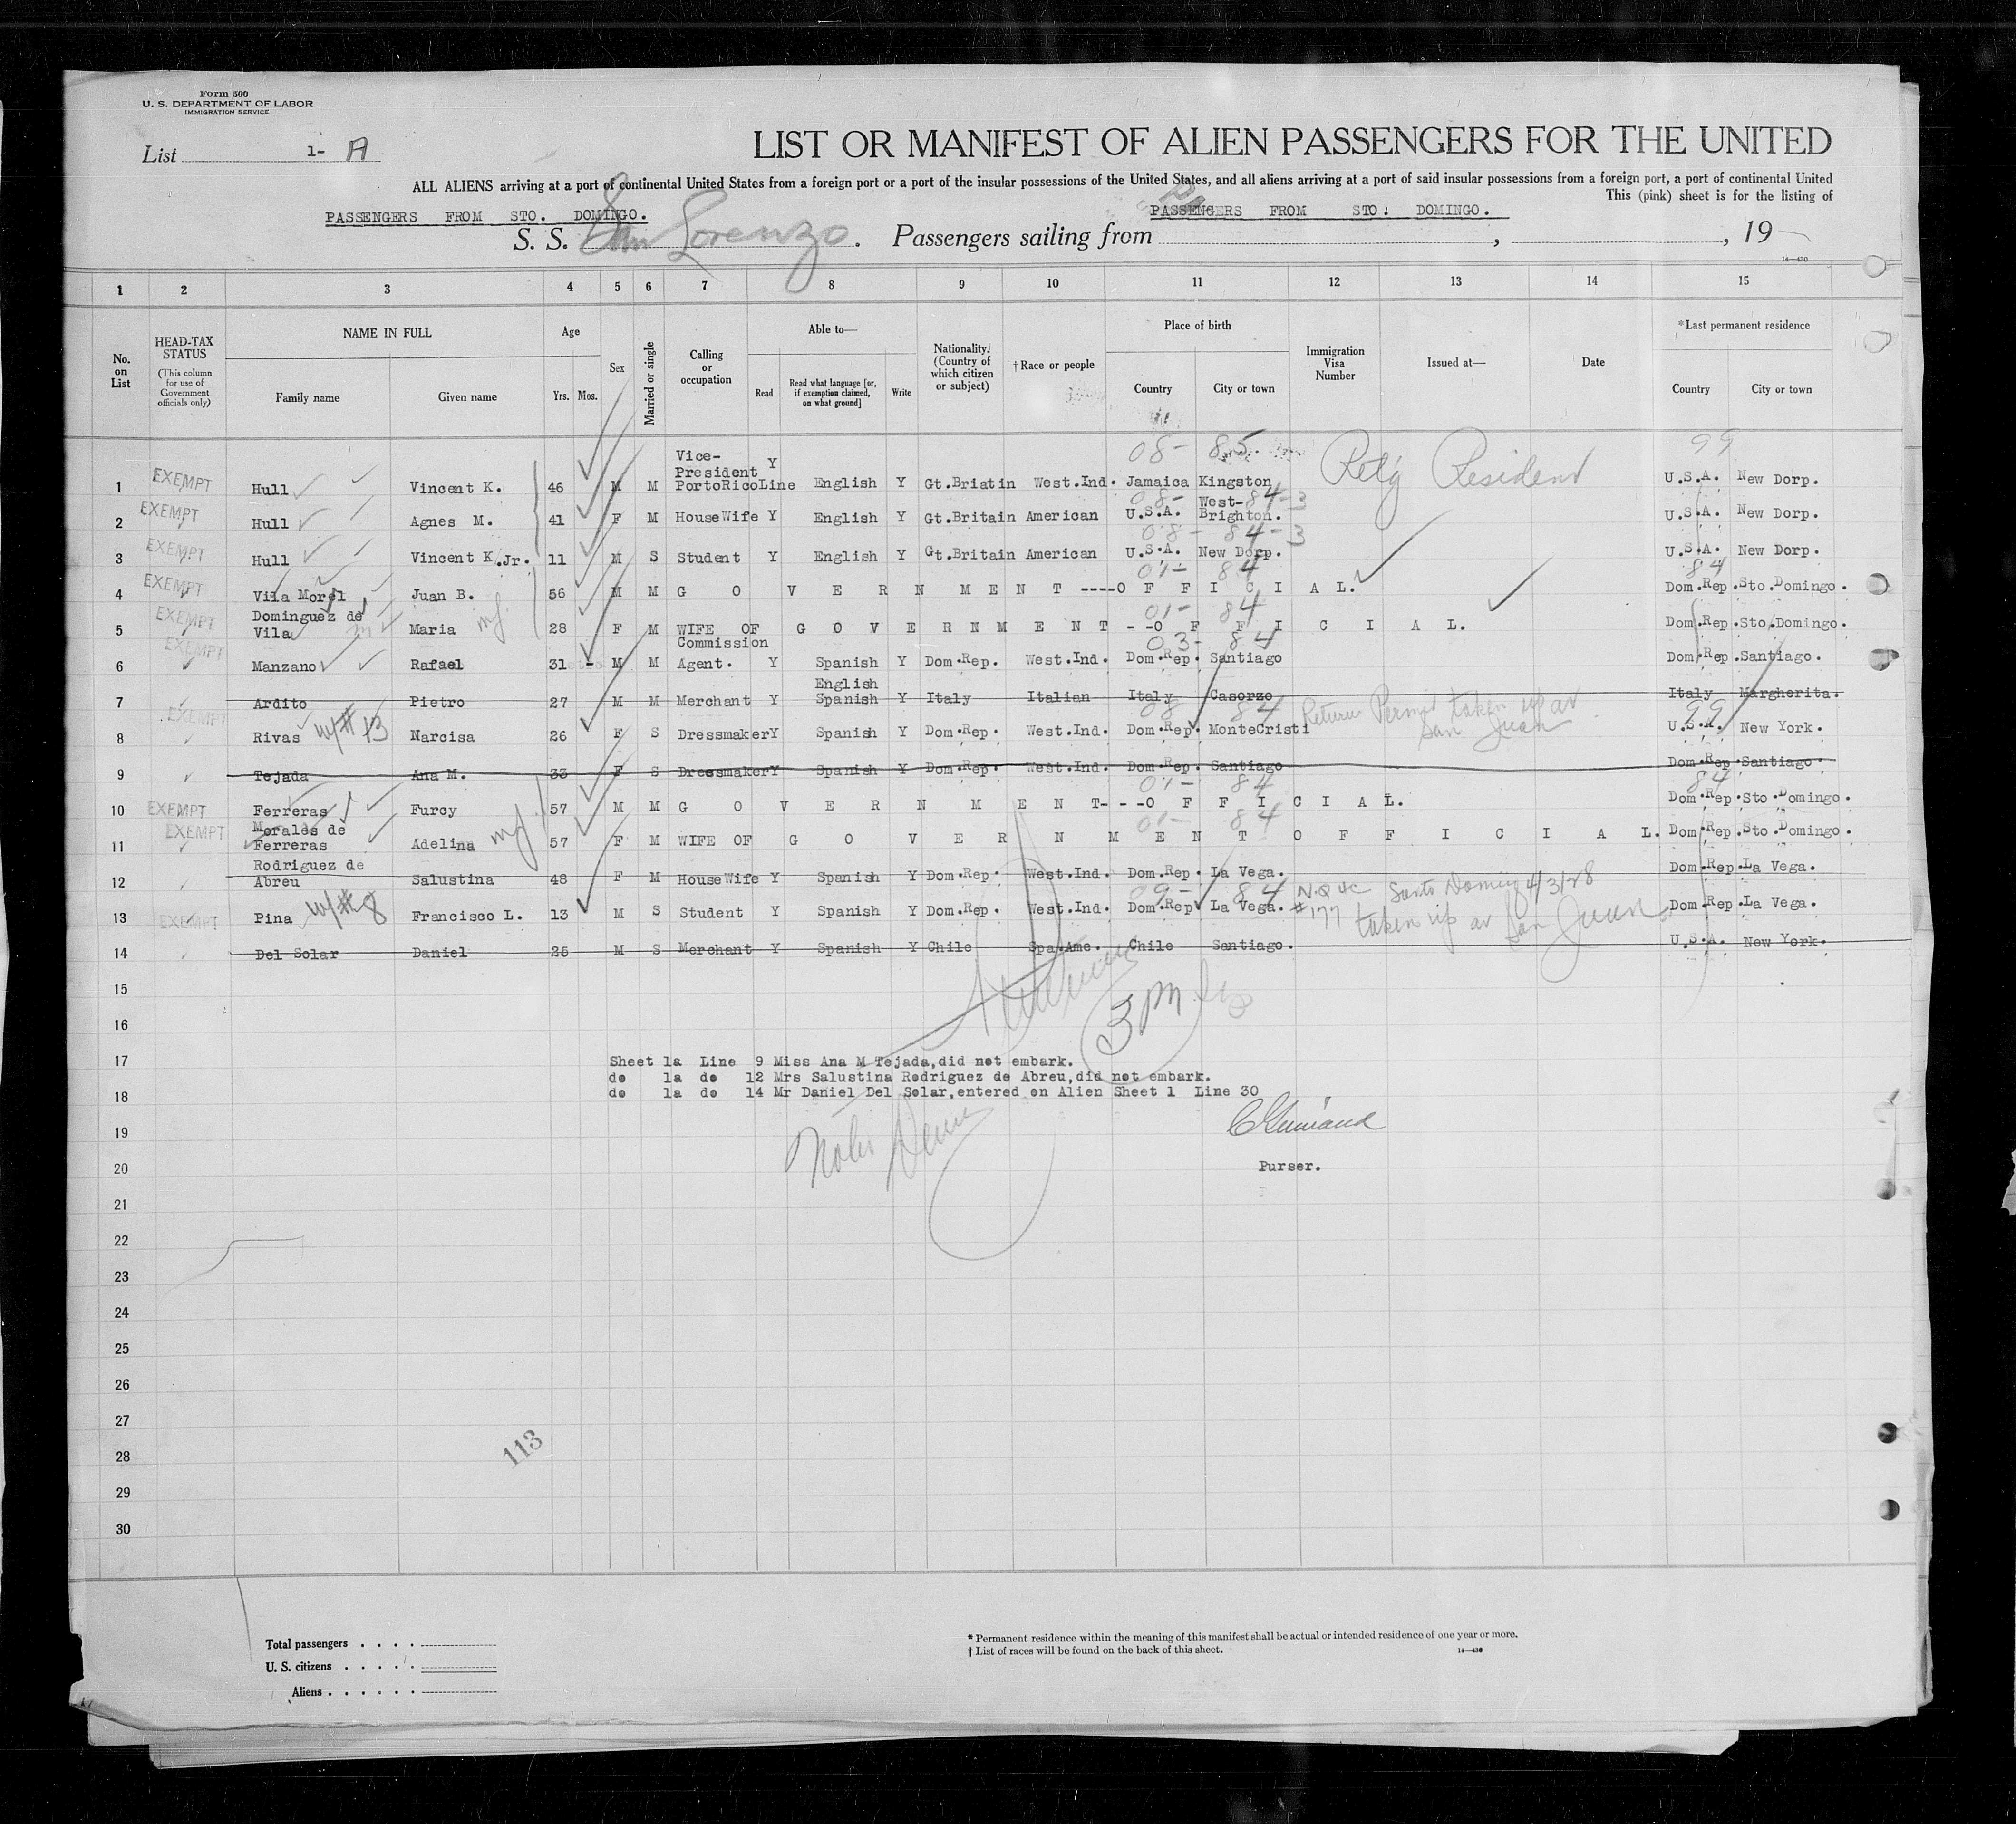 Form 500
U. S. DEPARTMENT OF LABOR
IMMIGRATION SERVICE
List 1- A
LIST OR MANIFEST OF ALIEN PASSENGERS FOR THE UNITED
ALL ALIENS arriving at a port of continental United States from a foreign port or a port of the insular possessions of the United States, and all aliens arriving at a port of said insular possessions from a foreign port, a port of continental United
This (pink) sheet is for the listing of
PASSENGERS FROM STO. DOMINGO. PASSENGERS FROM STO. DOMINGO.
S. S. San Lorenzo. Passengers sailing from , , 19
14—430
1 2 3 4 5 6 7 8 9 10 11 12 13 14 15
No. on List
HEAD-TAX STATUS
(This column for use of Government officials only)
NAME IN FULL
Family name Given name
Age
Yrs. Mos.
Sex
Married or single
Calling or occupation
Able to—
Read
Read what language [or, if exemption claimed, on what ground]
Write
Nationality. (Country of which citizen or subject)
†Race or people
Place of birth
Country City or town
Immigration Visa Number
Issued at—
Date
*Last permanent residence
Country City or town
08- 85 99
1 EXEMPT Hull Vincent K. 46 M M Vice-President PortoRicoLine Y English Y Gt.Briatin West.Ind. Jamaica Kingston Ret'g Resident U.S.A. New Dorp.
08- 84-3
2 EXEMPT Hull Agnes M. 41 F M HouseWife Y English Y Gt.Britain American U.S.A. West-Brighton. U.S.A. New Dorp.
08- 84-3
3 EXEMPT Hull Vincent K.Jr. 11 M S Student Y English Y Gt.Britain American U.S.A. New Dorp. U.S.A. New Dorp.
01- 84 84
4 EXEMPT Vila Morel Juan B. 56 M M G O V E R N M E N T ----O F F I C I A L. Dom.Rep.Sto.Domingo.
01- 84
5 EXEMPT Dominguez de Vila Maria 28 F M WIFE OF G O V E R N M E N T --O F F I C I A L. Dom.Rep.Sto.Domingo.
03- 84
6 EXEMPT Manzano Rafael 31 - M M Commission Agent. Y Spanish Y Dom.Rep. West.Ind. Dom.Rep. Santiago Dom.Rep.Santiago.
7 Ardito Pietro 27 M M Merchant Y English Spanish Y Italy Italian Italy Casorzo Italy Margherita.
08 84 Return Permit taken up at San Juan 99
8 EXEMPT Rivas w/#13 Narcisa 26 F S Dressmaker Y Spanish Y Dom.Rep. West.Ind. Dom.Rep. MonteCristi U.S.A. New York.
9 Tejada Ana M. 33 F S Dressmaker Y Spanish Y Dom.Rep. West.Ind. Dom.Rep. Santiago Dom.Rep.Santiago.
01- 84 84
10 EXEMPT Ferreras Furcy 57 M M G O V E R N M E N T---O F F I C I A L. Dom.Rep.Sto.Domingo.
01- 84
11 EXEMPT Morales de Ferreras Adelina 57 F M WIFE OF G O V E R N M E N T O F F I C I A L. Dom.Rep.Sto.Domingo.
12 Rodriguez de Abreu Salustina 48 F M HouseWife Y Spanish Y Dom.Rep. West.Ind. Dom.Rep. La Vega. Dom.Rep.La Vega.
09- 84
13 EXEMPT Pina w/#8 Francisco L. 13 M S Student Y Spanish Y Dom.Rep. West.Ind. Dom.Rep. La Vega. #177 Santo Domingo 4/3/28 taken up at San Juan Dom.Rep.La Vega.
14 Del Solar Daniel 25 M S Merchant Y Spanish Y Chile Spa.Ame. Chile Santiago. U.S.A. New York.
15
3 PM
16
17 Sheet 1a Line 9 Miss Ana M Tejada,did not embark.
do 1a do 12 Mrs Salustina Rodriguez de Abreu,did not embark.
18 do 1a do 14 Mr Daniel Del Solar,entered on Alien Sheet 1 Line 30
19
20 Purser.
21
22
23
24
25
26
27
113
28
29
30
Total passengers
U. S. citizens
Aliens
* Permanent residence within the meaning of this manifest shall be actual or intended residence of one year or more.
† List of races will be found on the back of this sheet.
14—430